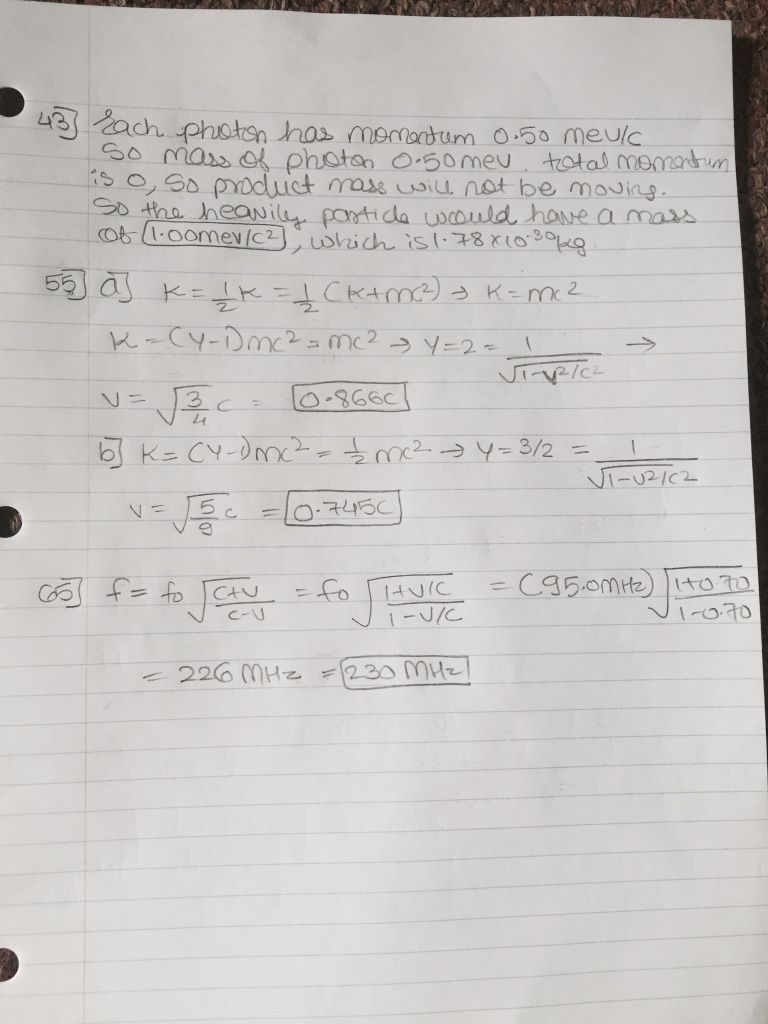 43] Each photon has momentum 0.50 mev/c
So mass of photon 0.50mev. total momentum
is 0, So product mass will not be moving.
So the heavily particle would have a mass
of 1.00mev/c², which is 1.78×10⁻³⁰kg
55] a] K = 1/2 K = 1/2 (K+mc²) → K = mc²
K = (γ-1)mc² = mc² → γ = 2 = 1/√(1-v²/c²) →
v = √(3/4) c = 0.866c
b] K = (γ-1)mc² = 1/2 mc² → γ = 3/2 = 1/√(1-v²/c²)
v = √(5/9) c = 0.745c
65] f = f₀ √((c+v)/(c-v)) = f₀ √((1+v/c)/(1-v/c)) = (95.0MHz) √((1+0.70)/(1-0.70))
= 226 MHz = 230 MHz